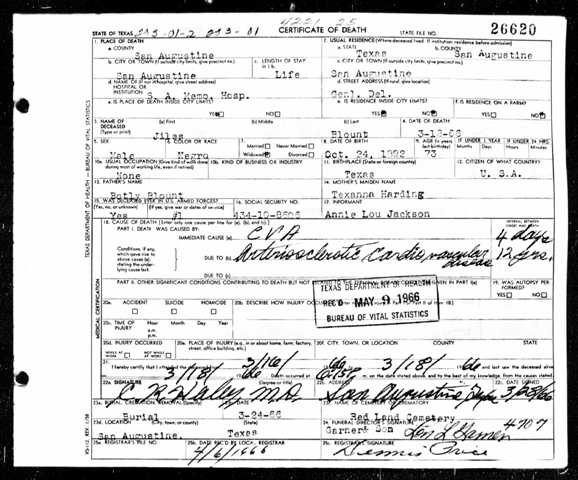 4221 25
STATE OF TEXAS 203-01-2 203-01 CERTIFICATE OF DEATH STATE FILE NO. 26620
1. PLACE OF DEATH 2. USUAL RESIDENCE (Where deceased lived. If institution: residence before admission)
a. COUNTY a. STATE b. COUNTY
San Augustine Texas San Augustine
b. CITY OR TOWN (If outside city limits, give precinct no.) c. LENGTH OF STAY in 1 b. c. CITY OR TOWN (If outside city limits, give precinct no.)
San Augustine Life San Augustine
d. NAME OF (If not in hospital, give street address) HOSPITAL OR INSTITUTION d. STREET ADDRESS (If rural, give location)
S. A. Memo. Hosp. Genl. Del.
e. IS PLACE OF DEATH INSIDE CITY LIMITS? e. IS RESIDENCE INSIDE CITY LIMITS? f. IS RESIDENCE ON A FARM?
YES NO YES NO YES NO
3. NAME OF DECEASED (Type or print) (a) First (b) Middle (c) Last 4. DATE OF DEATH
Jiles Blount 3-18-66
5. SEX 6. COLOR OR RACE 7. Married Never Married Widowed Divorced 8. DATE OF BIRTH 9. AGE (In years last birthday) IF UNDER 1 YEAR IF UNDER 24 HRS.
Male Negro Oct. 24, 1892 73
10a. USUAL OCCUPATION 10b. KIND OF BUSINESS OR INDUSTRY 11. BIRTHPLACE 12. CITIZEN OF WHAT COUNTRY?
None Texas U. S. A.
13. FATHER'S NAME 14. MOTHER'S MAIDEN NAME
Botly Blount Texanna Harding
15. WAS DECEASED EVER IN U.S. ARMED FORCES? 16. SOCIAL SECURITY NO. 17. INFORMANT
(Yes, no, or unknown) (If yes, give war or dates of service)
Yes #1 Annie Lou Jackson
18. CAUSE OF DEATH (Enter only one cause per line for (a), (b), and (c).) INTERVAL BETWEEN
PART I. DEATH WAS CAUSED BY:
IMMEDIATE CAUSE (a) CVA 4 days
Conditions, if any, which gave rise to above cause (a) stating the underlying cause last. DUE TO (b) Arteriosclerotic cardio vascular disease 12 yrs.
DUE TO (c)
19. WAS AUTOPSY PERFORMED?
YES NO
TEXAS DEPARTMENT OF HEALTH
REC'D MAY 9 1966
BUREAU OF VITAL STATISTICS
20a. ACCIDENT SUICIDE HOMICIDE 20b. DESCRIBE HOW INJURY
20c. TIME OF INJURY Hour Month Day Year
a.m.
p.m.
20d. INJURY OCCURRED 20e. PLACE OF INJURY (e.g., in or about home, farm, factory, street, office building, etc.) 20f. CITY, TOWN, OR LOCATION COUNTY STATE
WHILE AT WORK NOT WHILE AT WORK
21. I hereby certify that I attended the deceased from 3/16/ 66 3/18/ 66
3/18/ 66 Death occurred at m. on the date stated above, and to the best of my knowledge, from the causes stated.
22a. SIGNATURE (Degree or title) 22b. ADDRESS 22c. DATE SIGNED
M.D. San Augustine
23a. BURIAL, CREMATION, REMOVAL (Specify) 23b. DATE 23c. NAME OF CEMETERY OR CREMATORY
Burial 3-24-66 Red Land Cemetery
23d. LOCATION (City, town, or county) (State) 24. FUNERAL DIRECTOR'S SIGNATURE
San Augustine, Texas Garner Son 4707
25a. REGISTRAR'S FILE NO. 25b. DATE REC'D BY LOCAL REGISTRAR 25c. REGISTRAR'S SIGNATURE
4/6/1966 Dennis Price
TEXAS DEPARTMENT OF HEALTH—BUREAU OF VITAL STATISTICS
MEDICAL CERTIFICATION